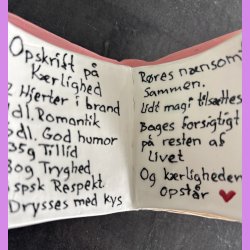 Opskrift på
Kærlighed
2 Hjerter i brand
dl. Romantik
dl. God humor
35g Tillid
30g Tryghed
spsk Respekt
Drysses med kys
Røres nænsomt
sammen.
Lidt magi tilsættes
Bages forsigtigt
på resten af
livet
Og kærligheden
opstår